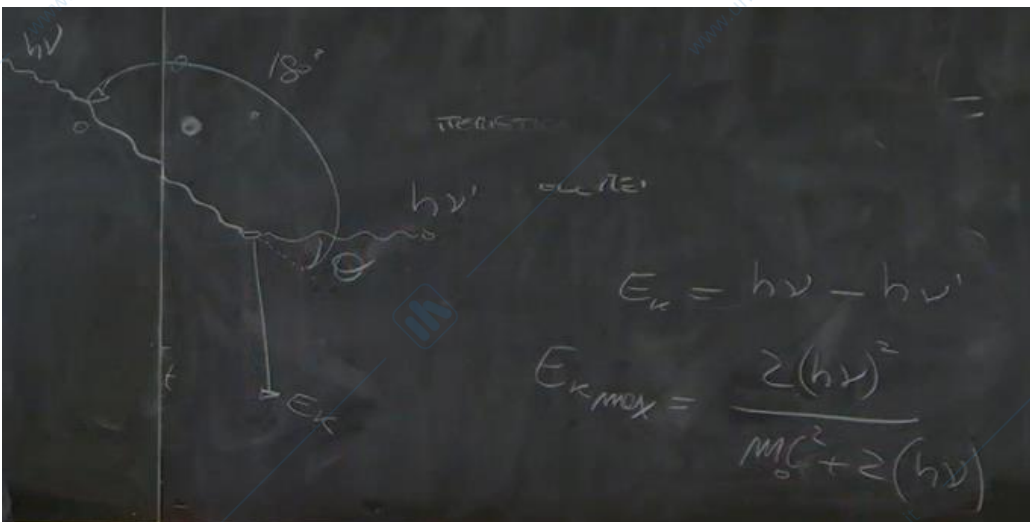 hν
180°
hν'
θ
E_K
E_K = hν − hν'
E_K max = 2(hν)² / m₀c² + 2(hν)